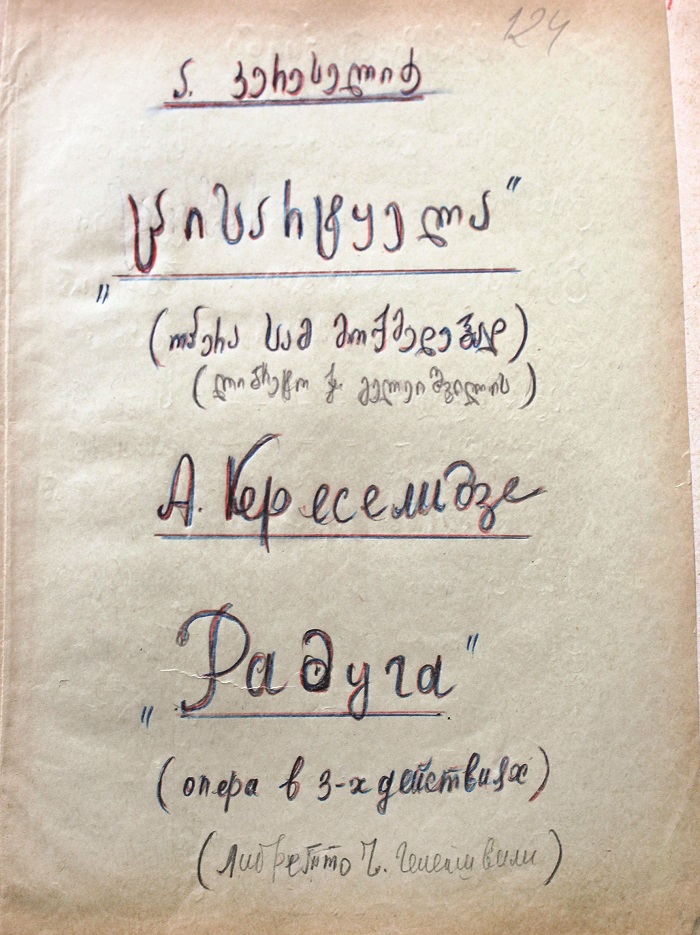 124
ა. კერესელიძე
„ცისარტყელა"
(ოპერა სამ მოქმედებად)
(ლიბრეტო ჭ. გელეიშვილის)
А. Кереселидзе
„Радуга"
(опера в 3-х действиях)
(Либретто Ч. Гелеишвили)